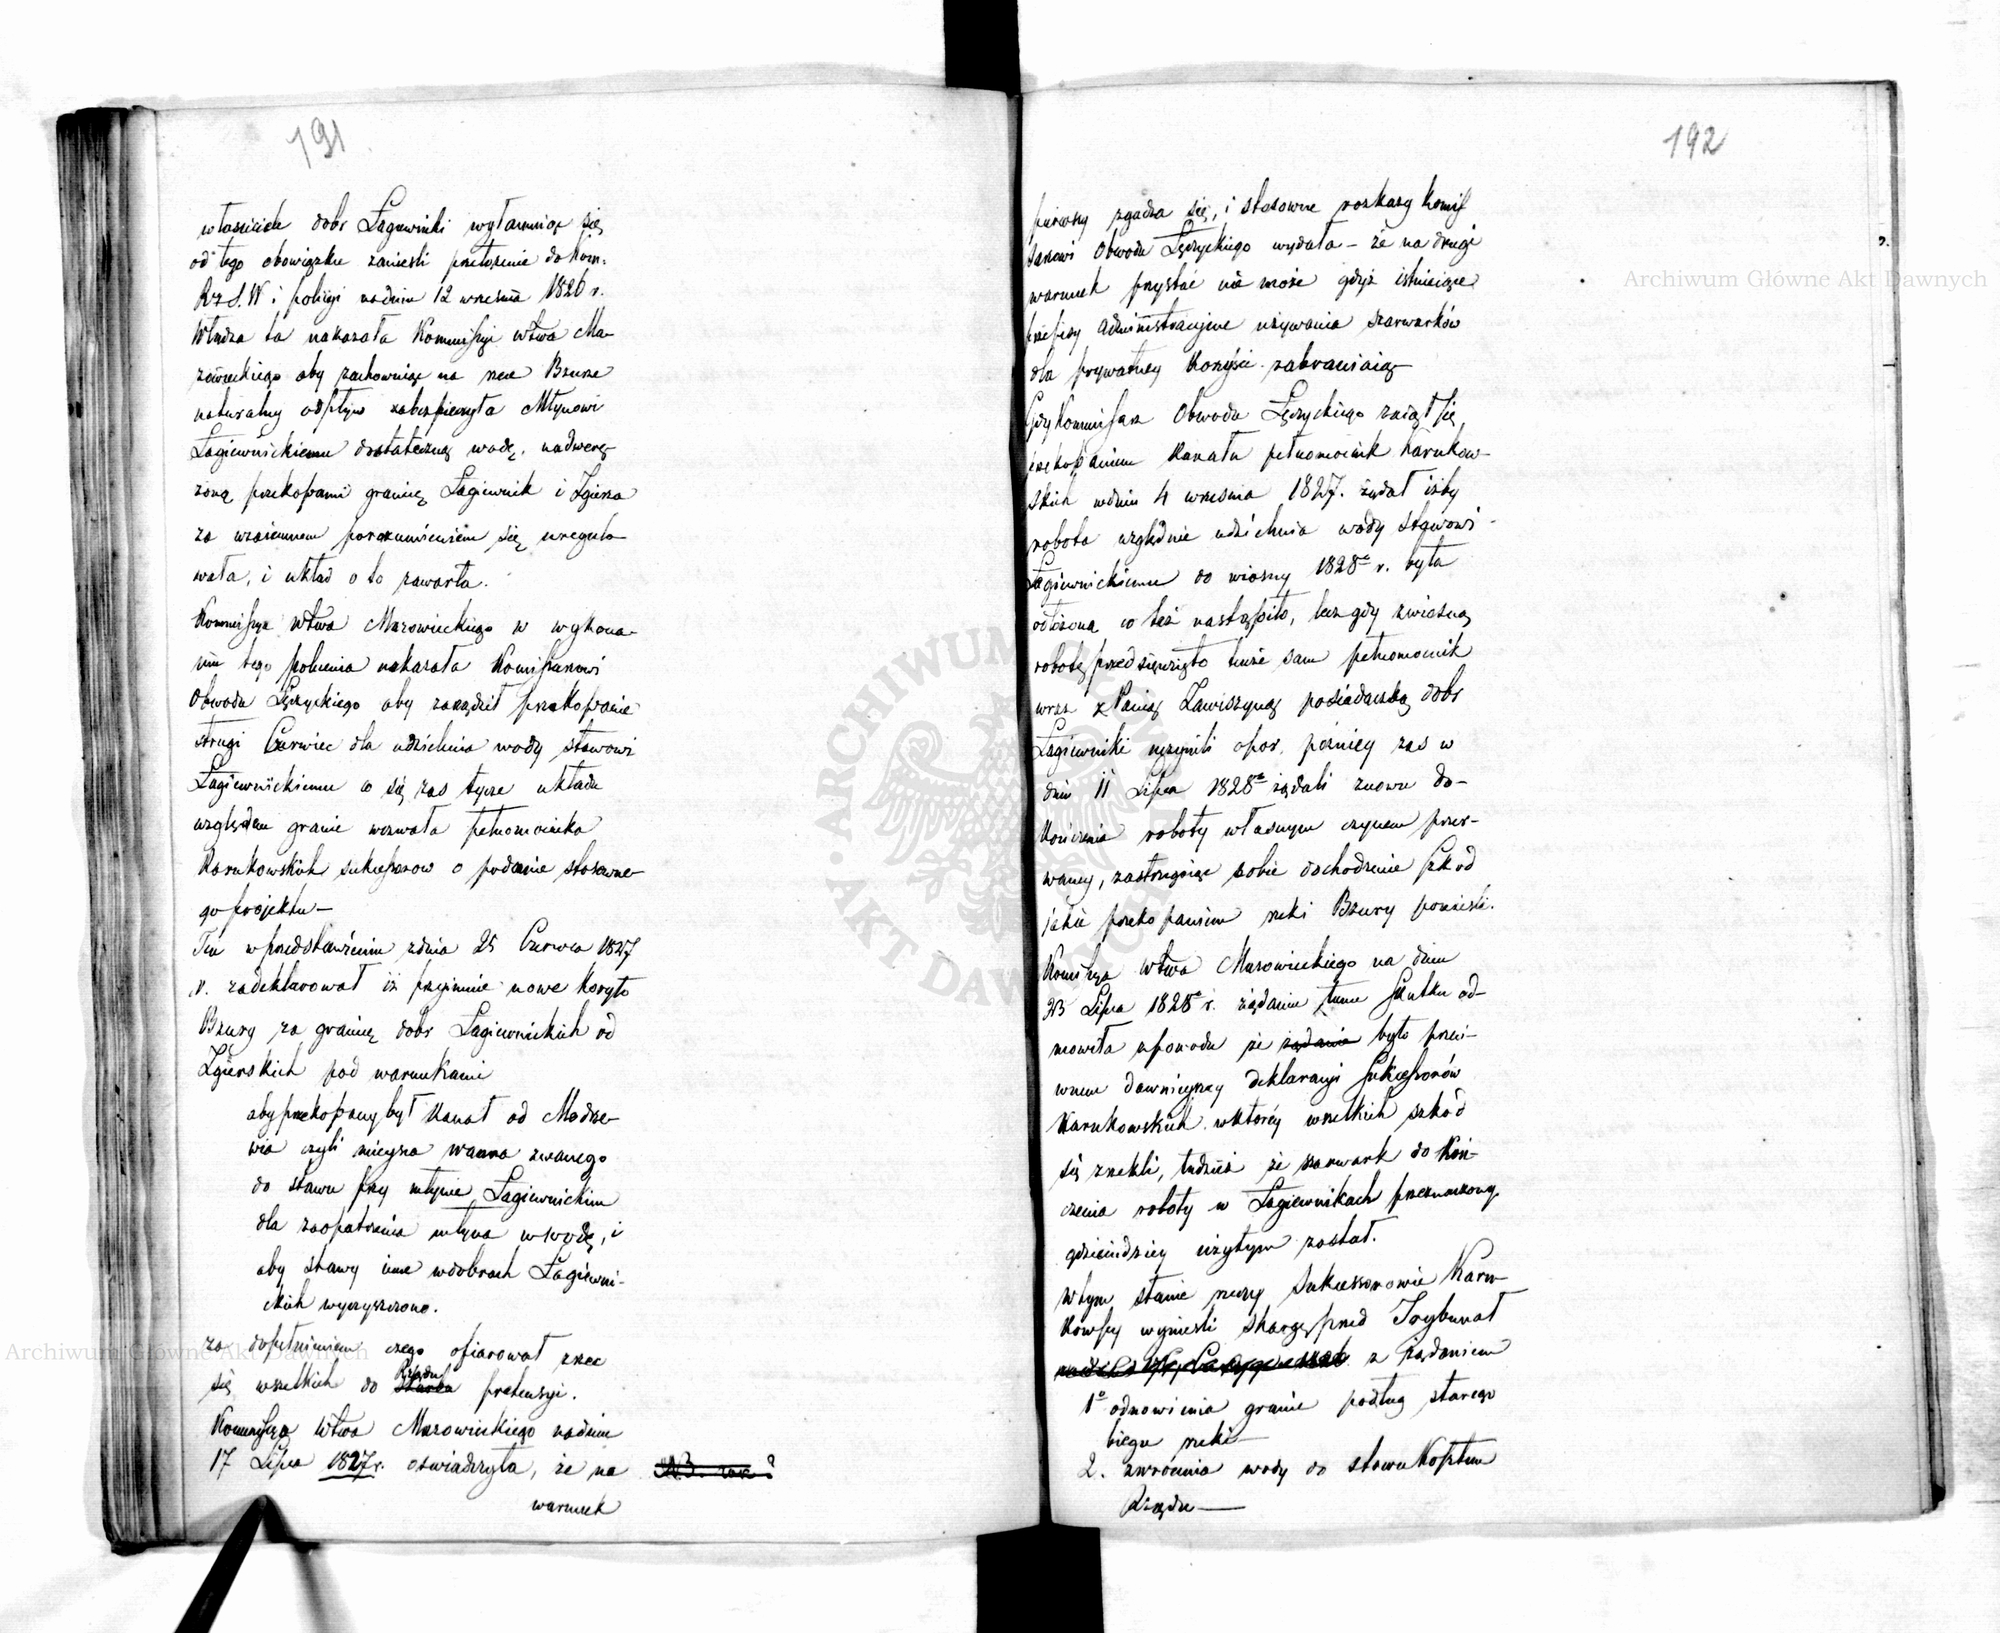 191
właściciele dóbr Łagiewniki wyłamuiąc się
od tego obowiązku zanieśli przełożenie do Kom:
Rz S. W i policyi na dniu 12 września 1826 r.
Władza ta nakazała Kommissyi wtwa Ma-
zowieckiego aby zachowuiąc na rzece Bzurze
naturalny odpływ zabezpieczyła Młynowi
Łagiewnickiemu dostateczną wodę, nadwerę-
żoną przekopami granicę Łagiewnik i Zgierza
za wzaiemnem porozumieniem się uregulo-
wała, i układ o to zawarła.
Kommissya Wtwa Mazowieckiego w wykona-
niu tego polecenia nakazała Komissarzowi
Obwodu Łęczyckiego aby zarządził przekopanie
strugi Czerwiec dla udzielenia wody stawowi
Łagiewnickiemu co się zas tycze układu
względem granic wezwała pełnomocnika
Karnkowskich sukcessorow o podanie stosowne-
go projektu—
Ten w przedstawieniu zdnia 25 Czerwca 1827
r. zadeklarował iż przyimuie nowe koryto
Bzury za granicę dobr Łagiewnickich od
Zgierskich pod warunkami
aby przekopany był Kanał od Modrze-
wia czyli mieysca wanna zwanego
do stawu przy młynie Łagiewnickim
dla zaopatrzenia młyna w wodę, i
aby stawy inne w dobrach Łagiewni-
ckich wyczyszczono.
za dopełnieniem czego ofiarował zrzec
się wszelkich do Rządu pretensyi.
Kommissya Wtwa Mazowieckiego na dniu
17 Lipca 1827 r. oświadczyła, że na
warunek
192
pierwszy zgadza się, i stosowne rozkazy Komis
sarzowi Obwodu Łęczyckiego wydała – że na drugi
warunek przystać nie może gdyż istnieiące
przepisy administracyjne używania szarwarków
dla prywatney korzyści zabraniaią—
Gdy Kommissarz Obwodu Łęczyckiego zaiął się
przekopaniem Kanału pełnomocnik Karnkow-
skich w dniu 4 września 1827. żądał iżby
robota względnie udzielenia wody stawowi
Łagiewnickiemu do wiosny 1828o r. była
odłożona co też nastąpiło, lecz gdy z wiosną
robotę przedsięwzięto tenże sam pełnomocnik
wraz z Panią Zawiszyną posiadaczką dobr
Łagiewniki uczynili opor, pozniey zas w
dniu 11 Lipca 1828o żądali znowu do-
kończenia roboty własnym czynem przer-
waney, zastrzegaiąc sobie dochodzenie szkod
jakie przekopaniem rzeki Bzury ponieśli.
Komissya Wtwa Mazowieckiego na dniu
23 Lipca 1828o r. żądaniu temu skutku od-
mowiła z powodu że żądanie było przeci-
wnem dawnieyszey deklaracyi sukcessorów
Karnkowskich w ktorey wszelkich szkód
się zrzekli, tudzież że szarwark do koń-
czenia roboty w Łagiewnikach przeznaczony
gdzieindziey użytym został.
W tym stanie rzeczy Sukcessorowie Karn-
kowscy wynieśli skargę przed Trybunał
z żądaniem
1o odnowienia granic podług starego
biegu rzeki—
2. zwrócenia wody do stawu kosztem
Rządu—
Archiwum Główne Akt Dawnych
Archiwum Główne Akt Dawnych
ARCHIWUM GŁÓWNE AKT DAWNYCH